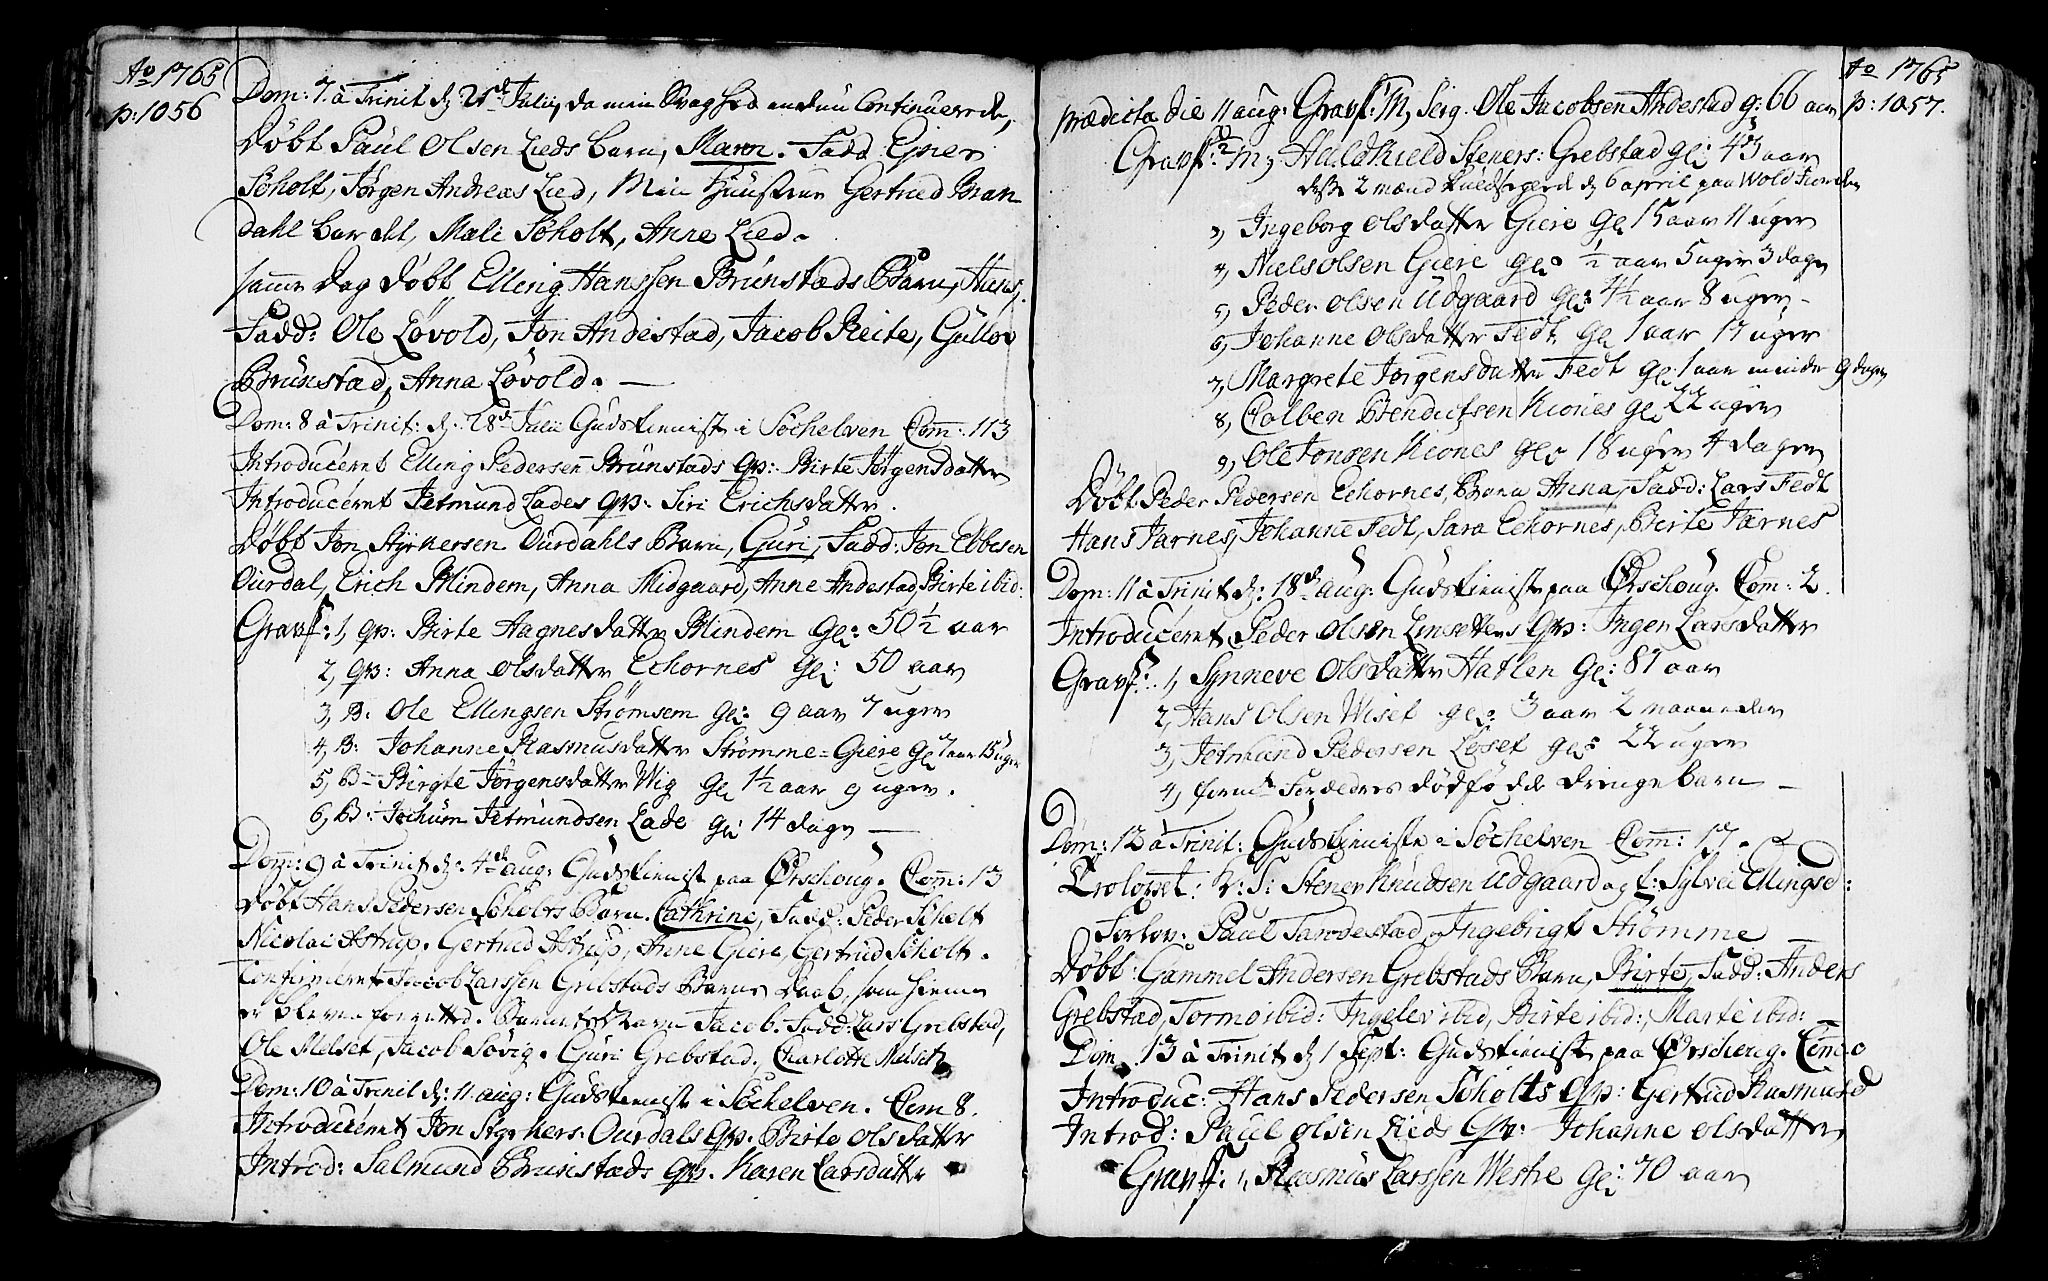 Ao 1765
p: 1056
Dom: 7 à Trinit d: 21de Julii, da min Svaghed endnu Continuerede,
Døbt Paul Olsen Lieds barn, Maren. Fadd: Ejner
Søholt, Jørgen Andreas Lied, Min Huustrue Gertrud Bran
dahl bar det, Mali Søholt, Anne Lied.
samme dag døbt Elling Hanssen Brunstads Barn, Hans.
Fadd: Ole Løvold, Jon Andestad, Jacob Reite, Gullov
Brunstad, Anna Løvold. —
Dom: 8 à Trinit: d: 28de Julii Gudstieniste i Søchelven Com: 113
Introduceret Elling Pedersen Brunstads qv: Birte Jørgensdatter
Introduceret Jetmund Lades qv: Siri Erichsdatter.
Døbt Jon Styrkersen Ourdahls Barn, Guri, Fadd: Jon Ebbesen
Ourdal, Erich Blindem, Anna Midgaard, Anne Andestad, Birte ibid:
Gravf: 1, qv: Birte Hagnesdatter Blindem gl: 50 ½ aar
2, qv: Anna Olsdatter Echornes gl: 50 aar
3, B: Ole Ellingsen Strømsem gl: 9 aar 7 uger
4, B: Johanne Rasmusdatter Strømme=Giere gl 7 aar 15 uger
5, B= Birgte Jørgensdatter Wig gl 1½ aar 9 uger.
6, B: Jochum Jetmundsen Lade gl: 14 dage —
Dom: 9 à Trinit d: 4de aug: Gudstieniste paa Ørschoug. Com: 13
Døbt Hans Pedersen Søholts Barn. Cathrine, Fadd: Peder Scholt
Nicolai Astrup. Gertrud Astrup, Anne Giere, Gertrud Scholt.
Confirmeret Jacob Larssen Grebstads Barns Daab, som hiemme
er bleven forretted. Barnet Jacob. Fadd: Lars Grebstad,
Ole Melset, Jacob Søvig. Guri Grebstad. Charlotte Melset
Dom: 10 à Trinit d: 11 aug: Gudstieniste i Søchelven. Com 8.
Introduceret Jon Styrkers: Ourdals qv. Birte Olsdatter
Introd: Salmund Brunstads qv. Karen Larsdatter
Ao 1765
p: 1057.
prædicta die 11 aug: Gravf: M, Seig. Ole Jacobsen Andestad g: 66 aar
Gravf: 2 M, Haldkield Steners: Grebstad gl: 43 aar
disse 2 mænd d: 6 april paa Wold Fiorden
3, Ingeborg Olsdatter Giere gl 15 aar 11 uger
4, Niels Olsen Giere gl: ½ aar 5 uger 3 dage
5, Peder Olsen Udgaard gl: 4½ aar 8 uger –
6, Johanne Olsdatter Fedt gl 1 aar 17 uger
7, Margrete Jørgensdatter Fedt gl: 1 aar mindre 9 dage
8, Colben Bendictsen Kiones gl: 22 uger
9, Ole Jonsen Kiones gl: 18 uger 4 dage
Døbt Peder Pedersen Echornes, Barn Anna, Fadd: Lars Fedt
Hans Jarnes, Johanne Fedt, Sara Echornes, Birte Jarnes
Dom: 11 à Trinit d: 18de aug: Gudstieniste paa Ørschoug. Com: 2.
Introduceret Peder Olsen qv: Inger Larsdatter
Gravf: 1, Synneve Olsdatter Hatlen gl: 81 aar
2, Hans Olsen Wiset gl: 3 aar 2 maaneder
3, Jetmund Pedersen Løset gl: 22 uger
4, dødfødde Drenge barn –
Dom: 12 à Trinit: Gudstieniste i Søchelven Com: 17.
Trolovet: V: S: Stener Knudsen Udgaard og E: Sylvei Ellingsd:
Forlov: Paul Tandestad, Ingebrigt Strømme
Døbt: Gammel Andersen Grebstads Barn, Birte, Fadd: Anders
Grebstad, Tormo ibid: Ingelev ibid, Birte ibid:, Marte ibid: –
Dom: 13 à Trinit d: 1 Sept: Gudstieniste paa Ørschoug. Com: 0
Introduc: Hans Pedersen Søholts qv: Gertrud Rasmusd
Introd: Paul Olsen Lieds qv: Johanne Olsdatter,
Gravf: 1, Rasmus Larssen Westre gl: 70 aar